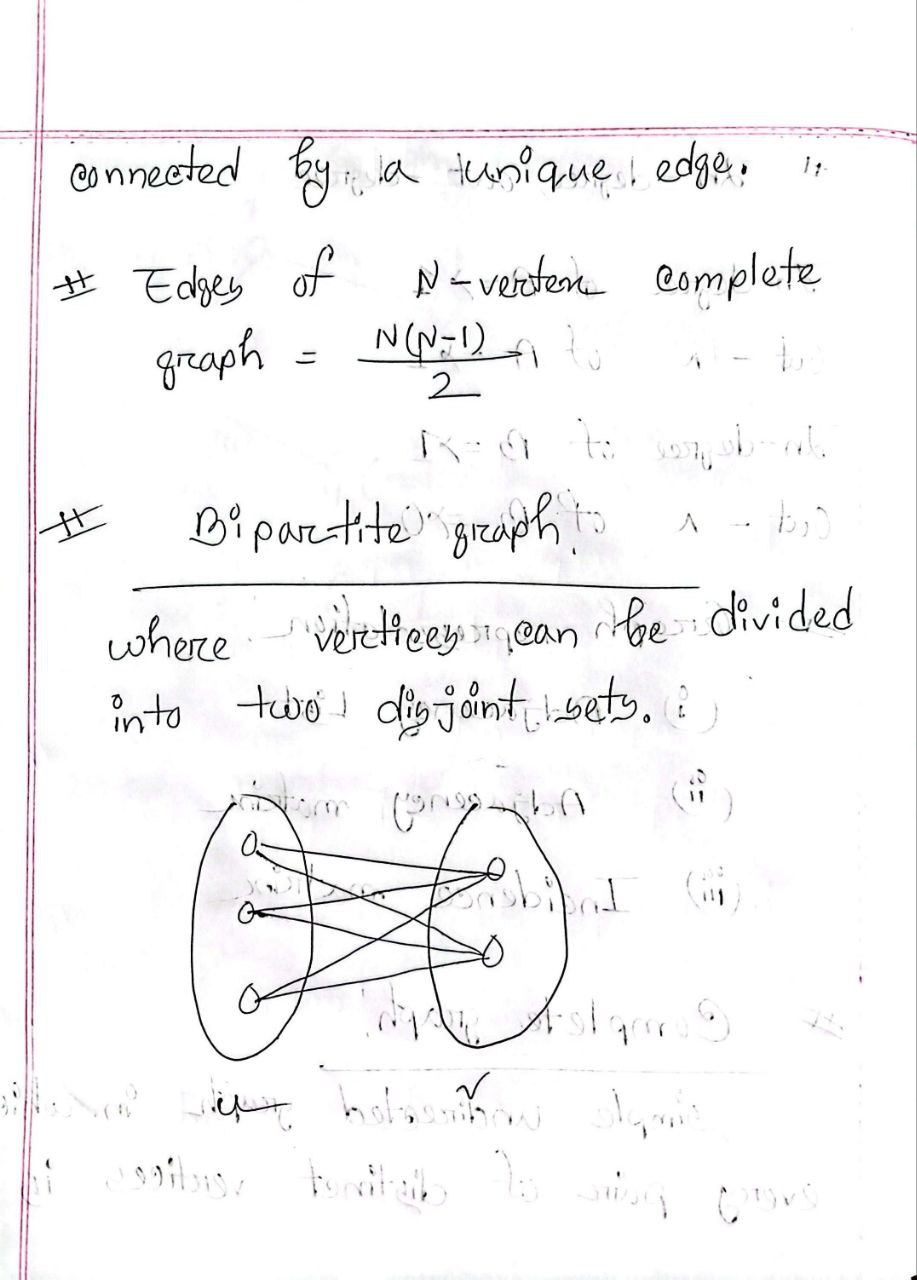 connected by a unique edge.
# Edges of N-vertex complete
graph = N(N-1)/2
# Bipartite graph:
where vertices can be divided
into two disjoint sets.
u v